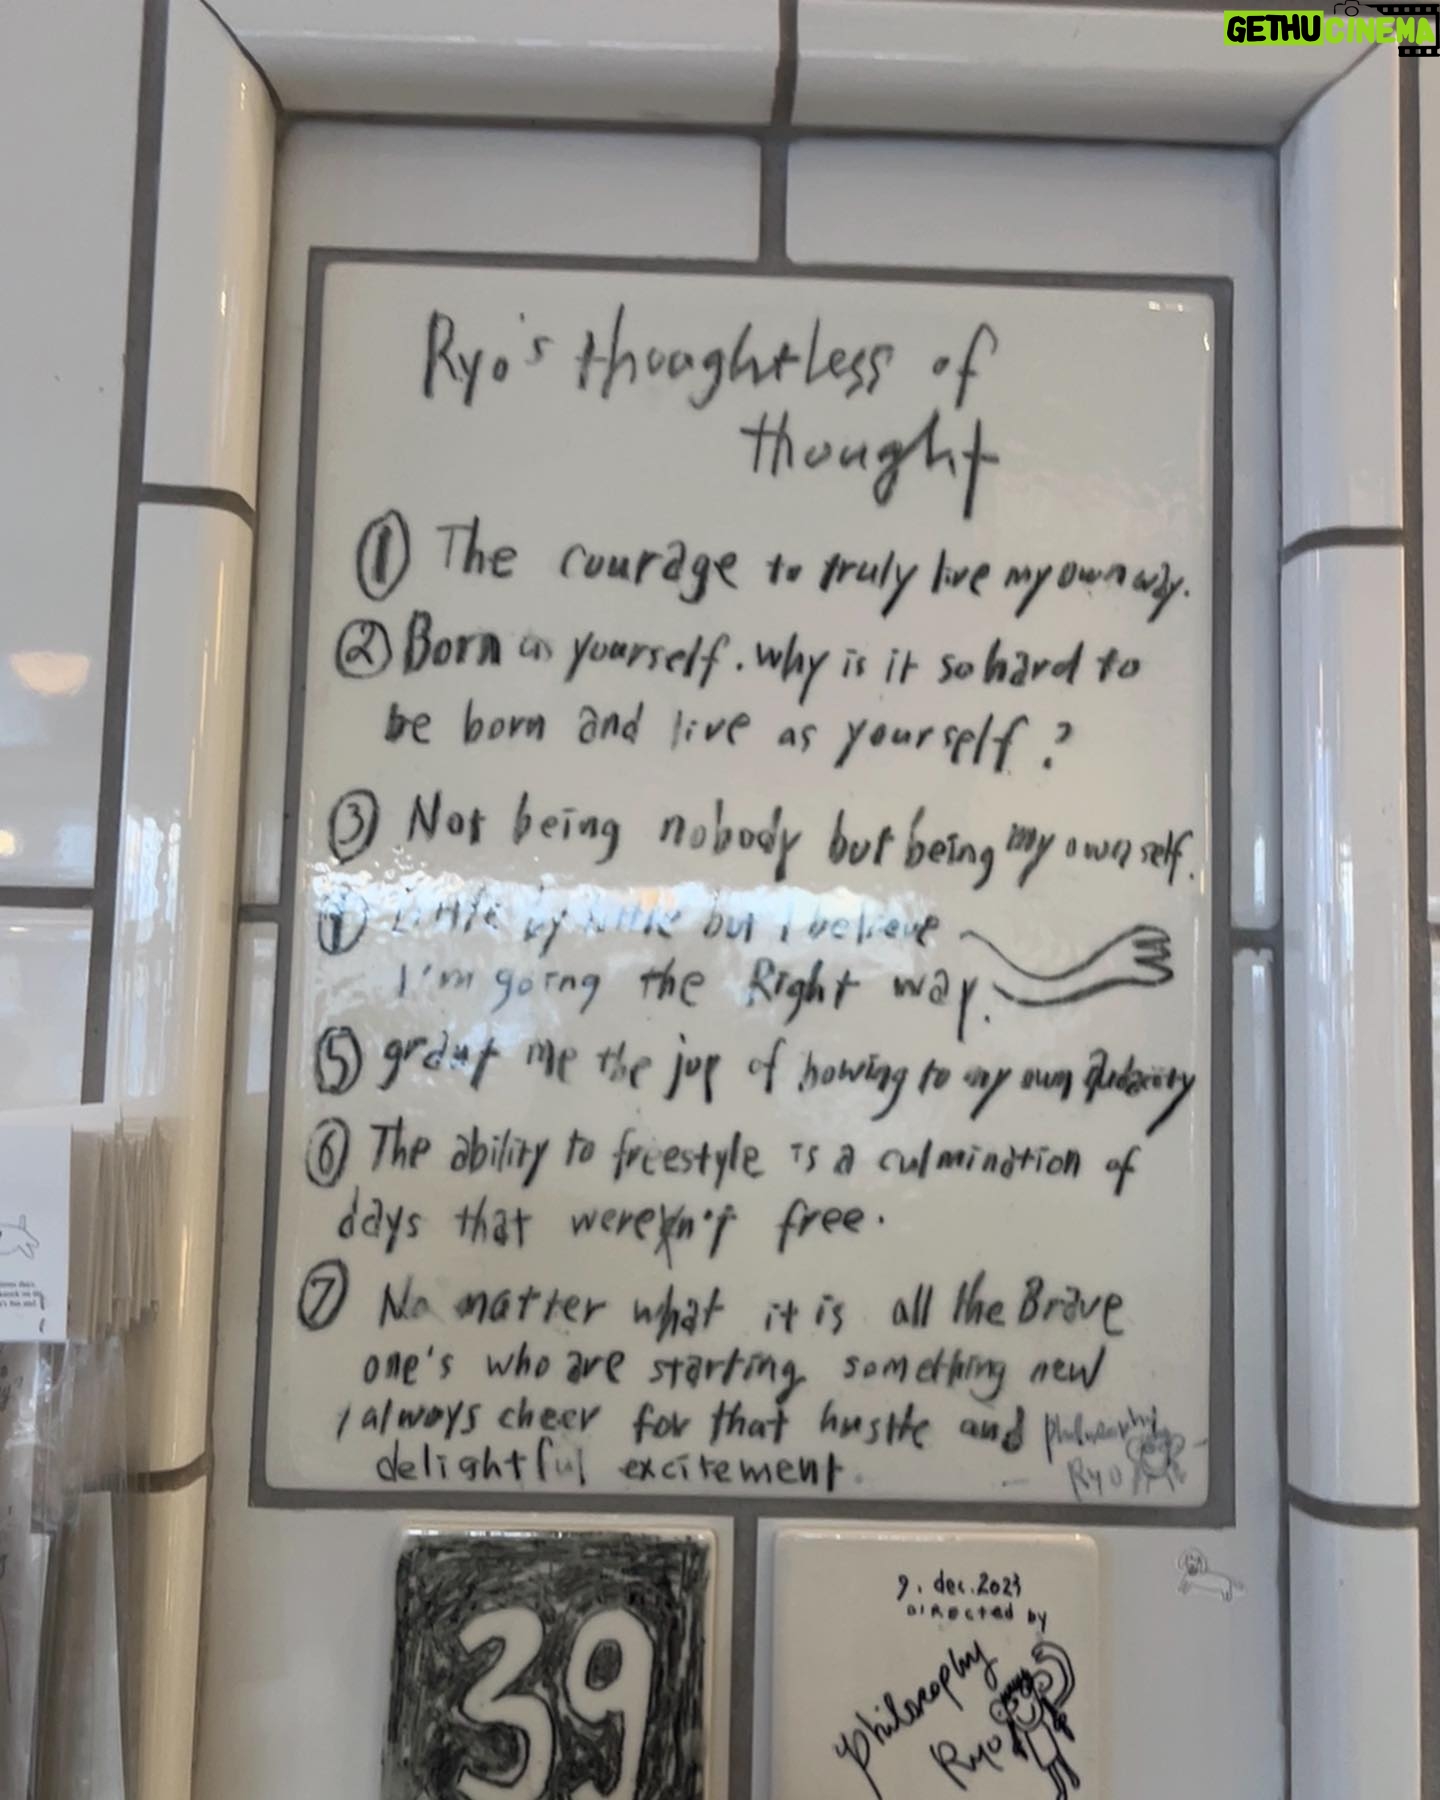 GETHUCINEMA
Ryo's thoughtless of
thought
① The courage to truly live my own way.
② Born as yourself. why is it so hard to
be born and live as yourself?
③ Not being nobody but being my own self.
④ Little by little but I believe
I'm going the Right way.
⑤ grant me the joy of bowing to my own
⑥ The ability to freestyle is a culmination of
days that weren't free.
⑦ No matter what it is all the Brave
one's who are starting something new
I always cheer for that hustle and
delightful excitement.
Philosophy
Ryo
39
9. dec. 2023
DIRECTED by
Philosophy
Ryo